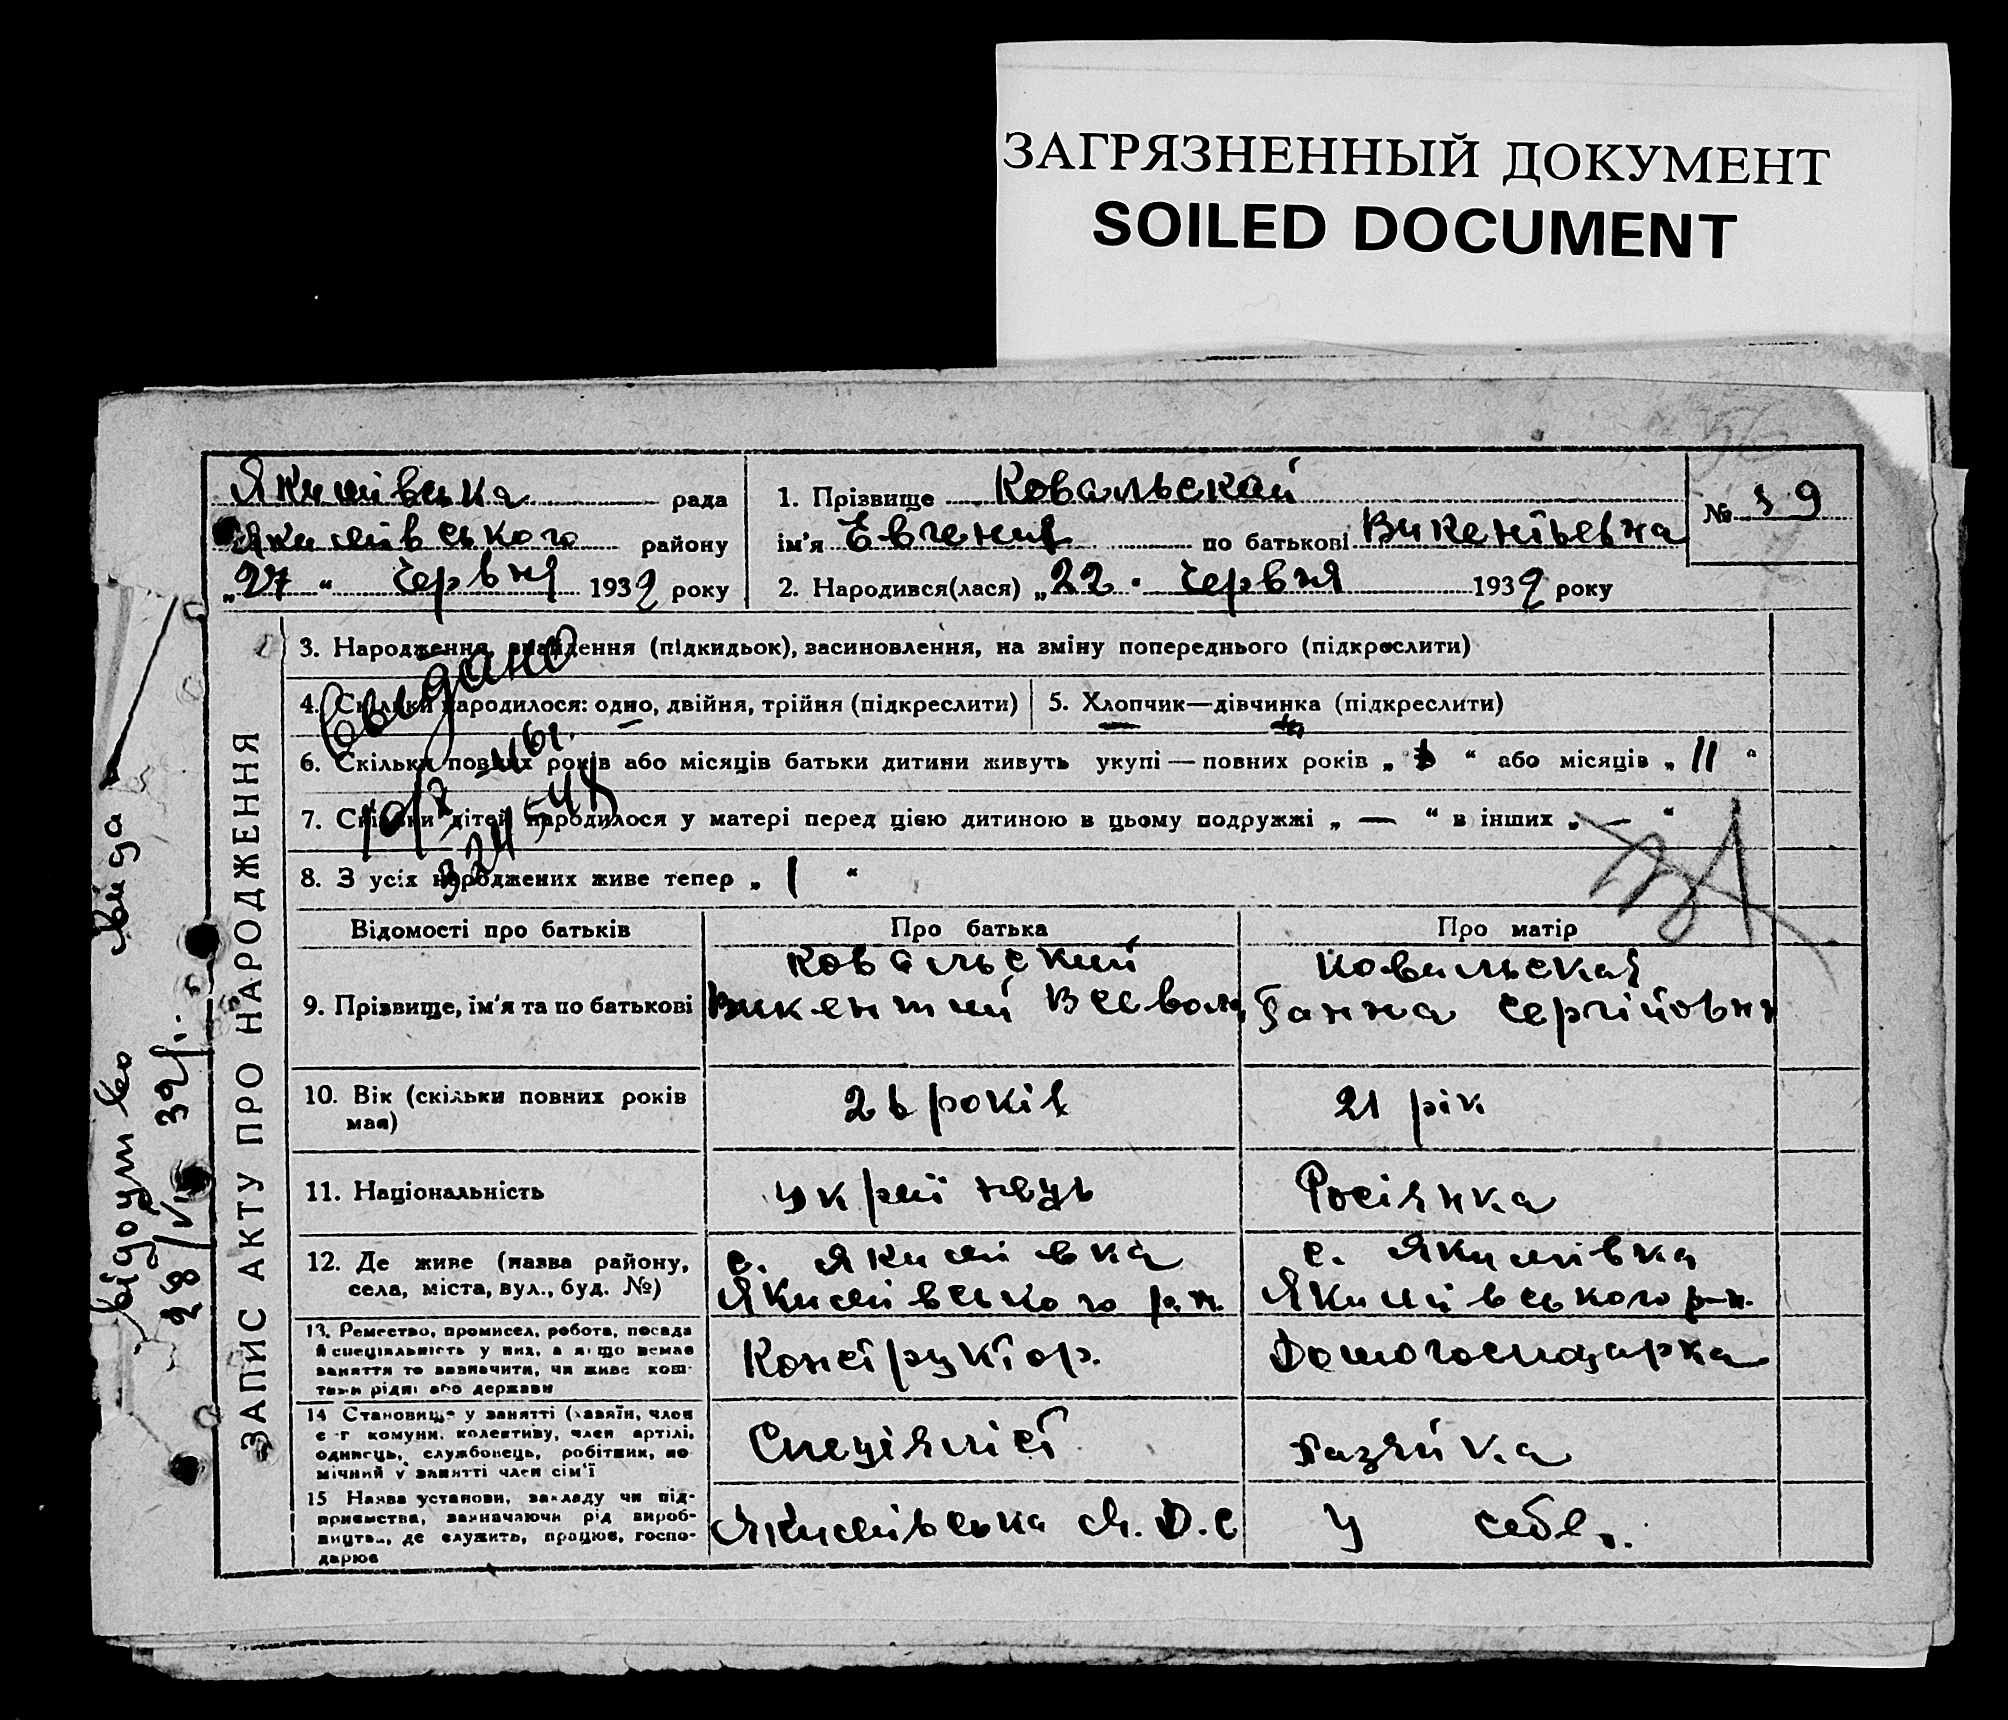 ЗАГРЯЗНЕННЫЙ ДОКУМЕНТ
SOILED DOCUMENT
Якимівська рада
Якимівського району
„27“ червня 1932 року
1. Прізвище Ковальскай
ім'я Евгения по батькові Викентьевна
2. Народився(лася) „22" червня 1932 року
№ 59
ЗАПИС АКТУ ПРО НАРОДЖЕННЯ
3. Народження, знайдення (підкидьок), засиновлення, на зміну попереднього (підкреслити)
4. Скільки народилося: одно, двійня, трійня (підкреслити)
5. Хлопчик—дівчинка (підкреслити)
6. Скільки повних років або місяців батьки дитини живуть укупі — повних років „ “ або місяців „11“
7. Скільки дітей народилося у матері перед цією дитиною в цьому подружжі „ — “ в інших „ — “
8. З усіх народжених живе тепер „ 1 “
Выдано
Відомості про батьків
Про батька
Про матір
9. Прізвище, ім'я та по батькові
Ковальский
Викентий Всевол
Ковальская
Ганна Сергійовна
10. Вік (скільки повних років має)
26 років
21 рік
11. Національність
українець
Росіянка
12. Де живе (назва району,
села, міста, вул., буд. №)
с. Якимівка
Якимівського р-н.
с. Якимівка
Якимівського р-н.
13. Ремество, промисел, робота, посада
й спеціяльність у них, а якщо немає
заняття то зазначити, чи живе кош-
тами рідні або держави
Конструктор.
Домогосподарка
14 Становище у занятті (хазяїн, член
с-г комуни, колективу, член артілі,
одинець, службовець, робітник, по-
мічний у занятті член сім'ї
Спеціяліст
Хазяйка
15 Назва установи, закладу чи під-
приємства, зазначаючи рід вироб-
ництва, де служить, працює, госпо-
дарює
Якимівська М.Д.С
У себе.
28/VI 32 г.